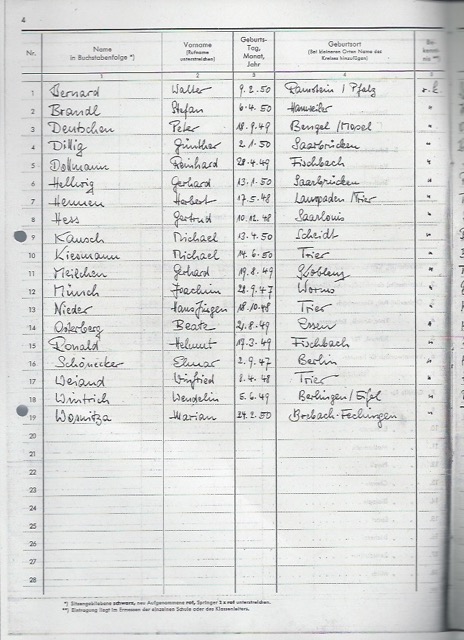 4
Nr. Name in Buchstabenfolge *) Vorname (Rufname unterstreichen) Geburts-Tag, Monat, Jahr Geburtsort (Bei kleineren Orten Name des Kreises hinzufügen)
1 2 3 4
1 Bernard Walter 9.2.50 Ramstein / Pfalz r.k.
2 Brandl Stefan 6.4.50 "
3 Deutschen Peter 18.9.49 Bengel / Mosel "
4 Dillig Günther 2.1.50 Saarbrücken "
5 Dollmann Reinhard 28.4.49 Fischbach "
6 Hellwig Gerhard 13.1.50 Saarbrücken "
7 Hennen Herbert 17.5.48 Lampaden / Trier "
8 Hess Gertrud 10.12.48 Saarlouis "
9 Kausch Michael 13.4.50 Scheidt "
10 Kiesmann Michael 14.6.50 Trier "
11 Meilchen Gerhard 19.8.49 Koblenz "
12 Münch Joachim 28.9.47 Worms "
13 Nieder Hansjürgen 18.10.48 Trier "
14 Osterberg Beate 21.8.49 Essen "
15 Ronald Helmut 17.3.49 Fischbach "
16 Schönecker Elmar 2.9.47 Berlin "
17 Weiand Winfried 2.4.48 Trier "
18 Wintrich Wendelin 5.6.49 Berlingen / Eifel "
19 Wosnitza Marian 24.2.50 Brebach-Fechingen "
20
21
22
23
24
25
26
27
28
*) Sitzengebliebene schwarz, neu Aufgenommene rot, Springer 2 x rot unterstreichen.
**) Eintragung liegt im Ermessen der einzelnen Schule oder des Klassenleiters.